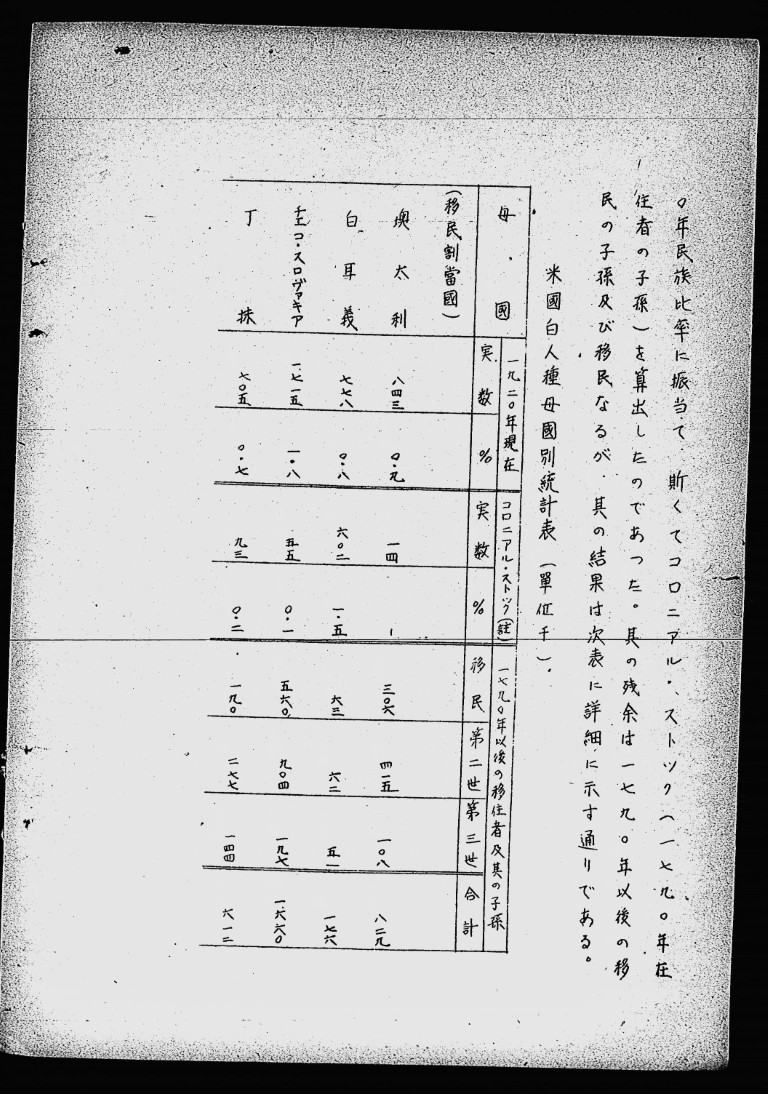 〇年民族比率に振当て、斯くてコロニアル・ストック（一七九〇年在
住者の子孫）を算出したのであつた。其の残余は一七九〇年以後の移
民の子孫及び移民なるが、其の結果は次表に詳細に示す通りである。
米國白人種母國別統計表（單位千）.
母國
一九二〇年現在
コロニアル・ストック（註）
一七九〇年以後の移住者及其の子孫
実数
%
実数
%
移民
第二世
第三世
合計
（移民割當國）
墺太利 八四三 〇・九 一四 ― 三〇六 四一五 一〇八 八二九
白耳義 七七八 〇・八 六〇二 一・五 六三 六二 五一 一七六
チエコ・スロヴアキア 一、七一五 一・八 五五 〇・一 五六〇 九〇四 一九七 一、六六〇
丁抹 七〇五 〇・七 九三 〇・二 一九〇 二七七 一四四 六一二